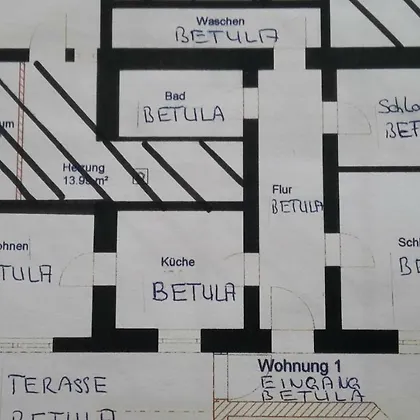 Waschen
BETULA
Bad
BETULA
Schla
BET
um
Heizung
13.95 m²
Flur
BETULA
ohnen
TULA
Küche
BETULA
Schl
BE
Wohnung 1
EINGANG
BETULA
TERASSE
BETULA